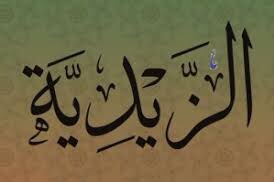 الزَّيْدِيَّة